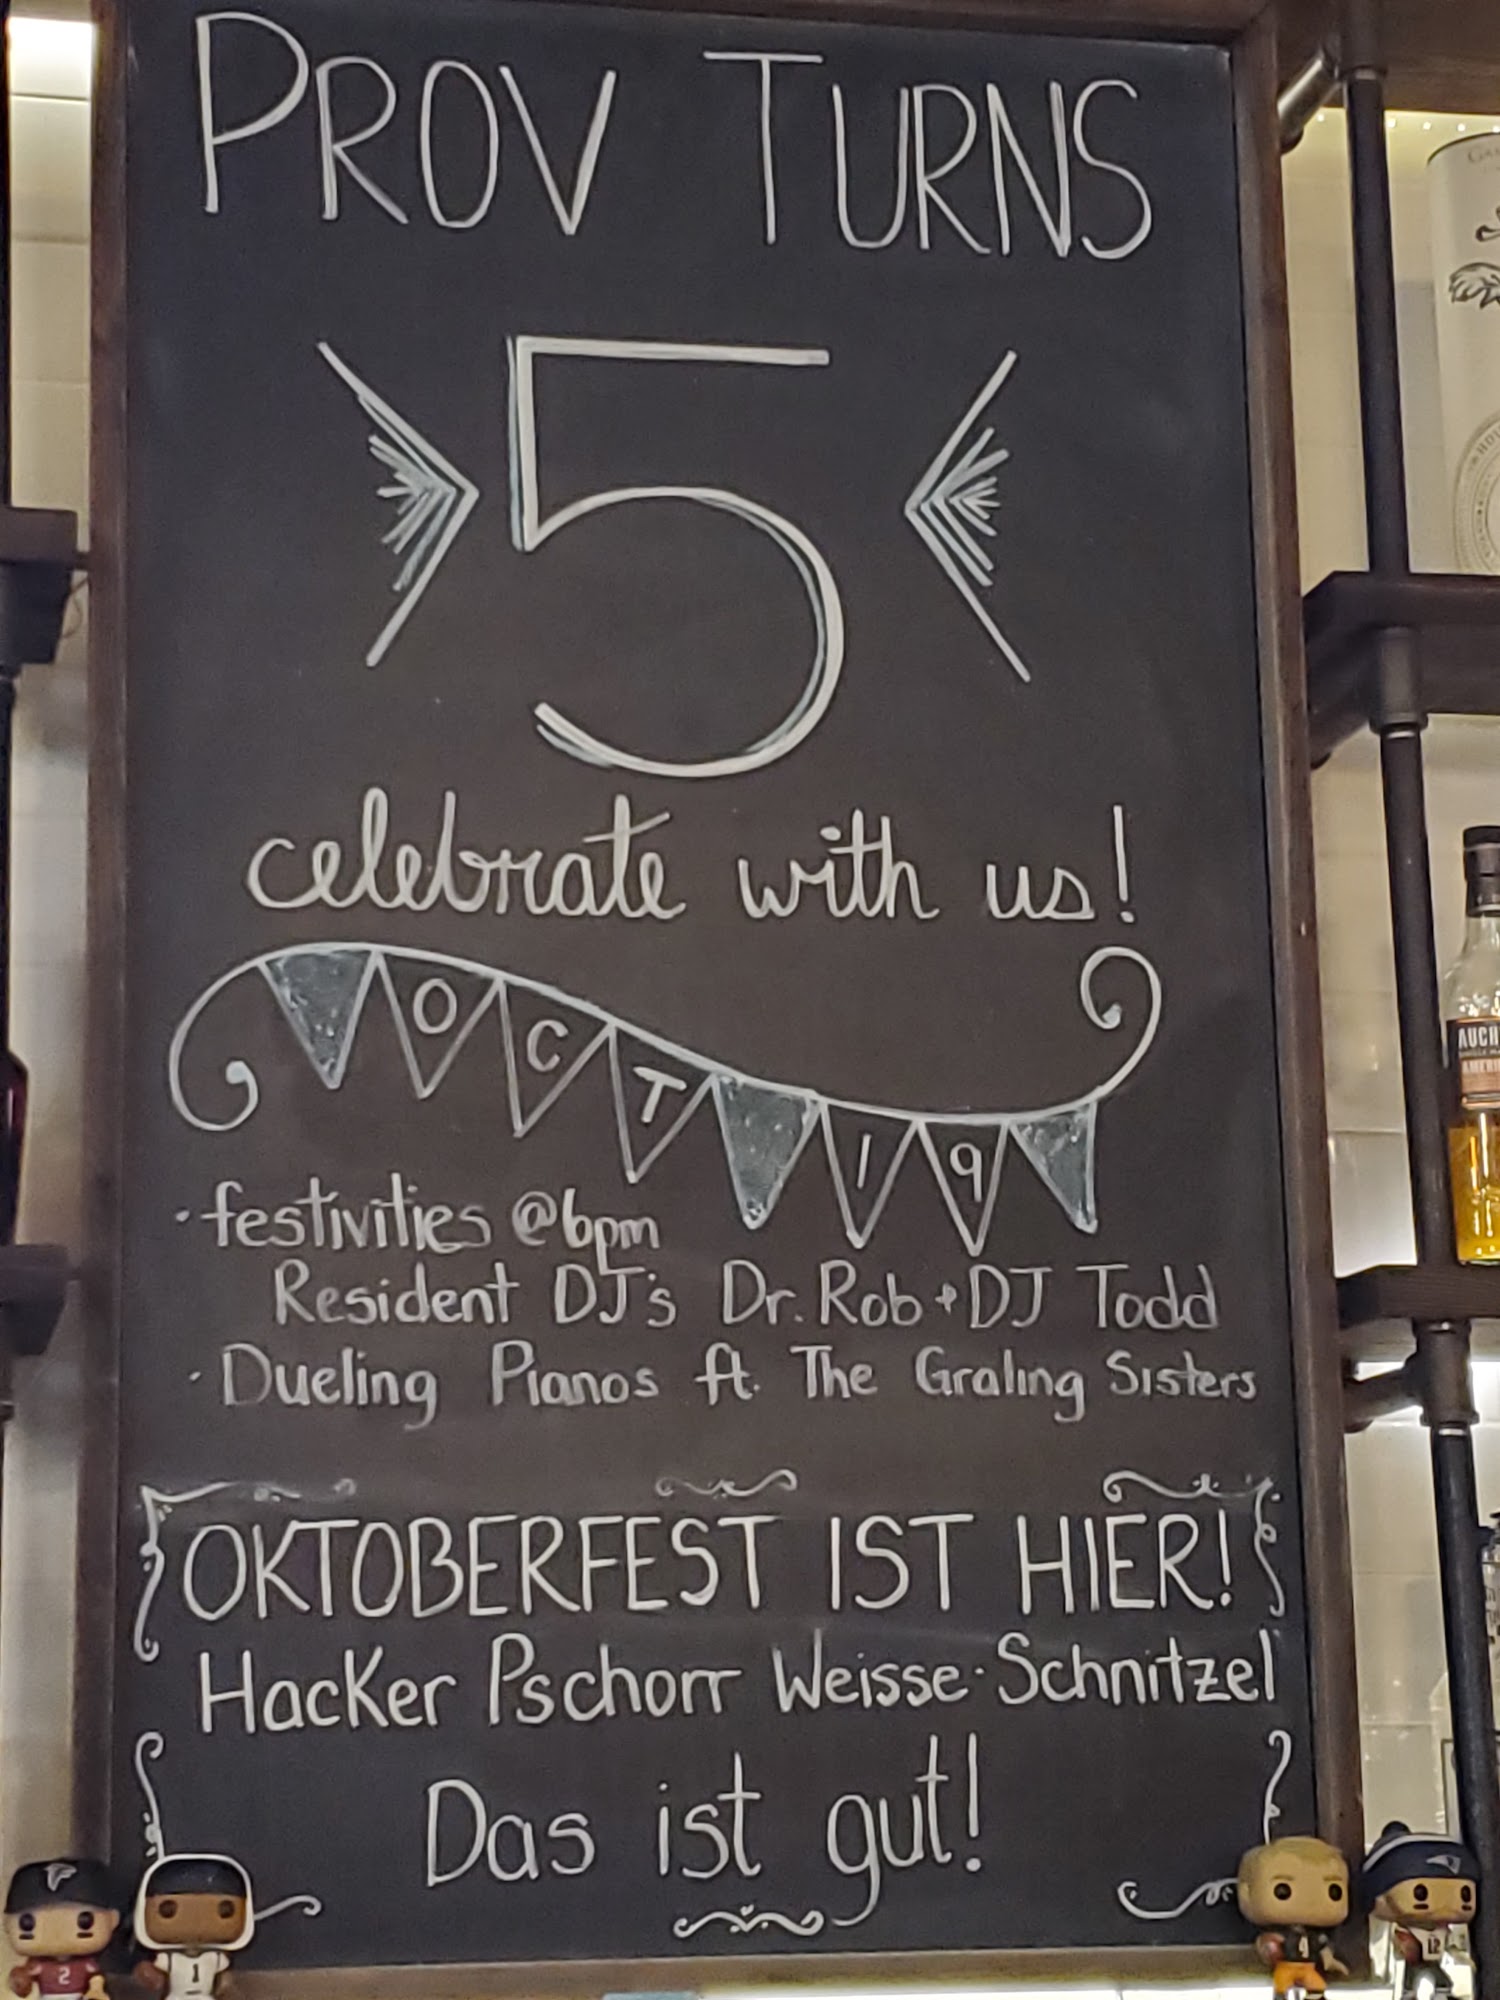 PROV TURNS
5
celebrate with us!
OCT 19
· festivities @6pm
Resident DJ's Dr. Rob + DJ Todd
· Dueling Pianos ft. The Graling Sisters
OKTOBERFEST IST HIER!
Hacker Pschorr Weisse · Schnitzel
Das ist gut!
AUCH
AMERI
2
1
4
12